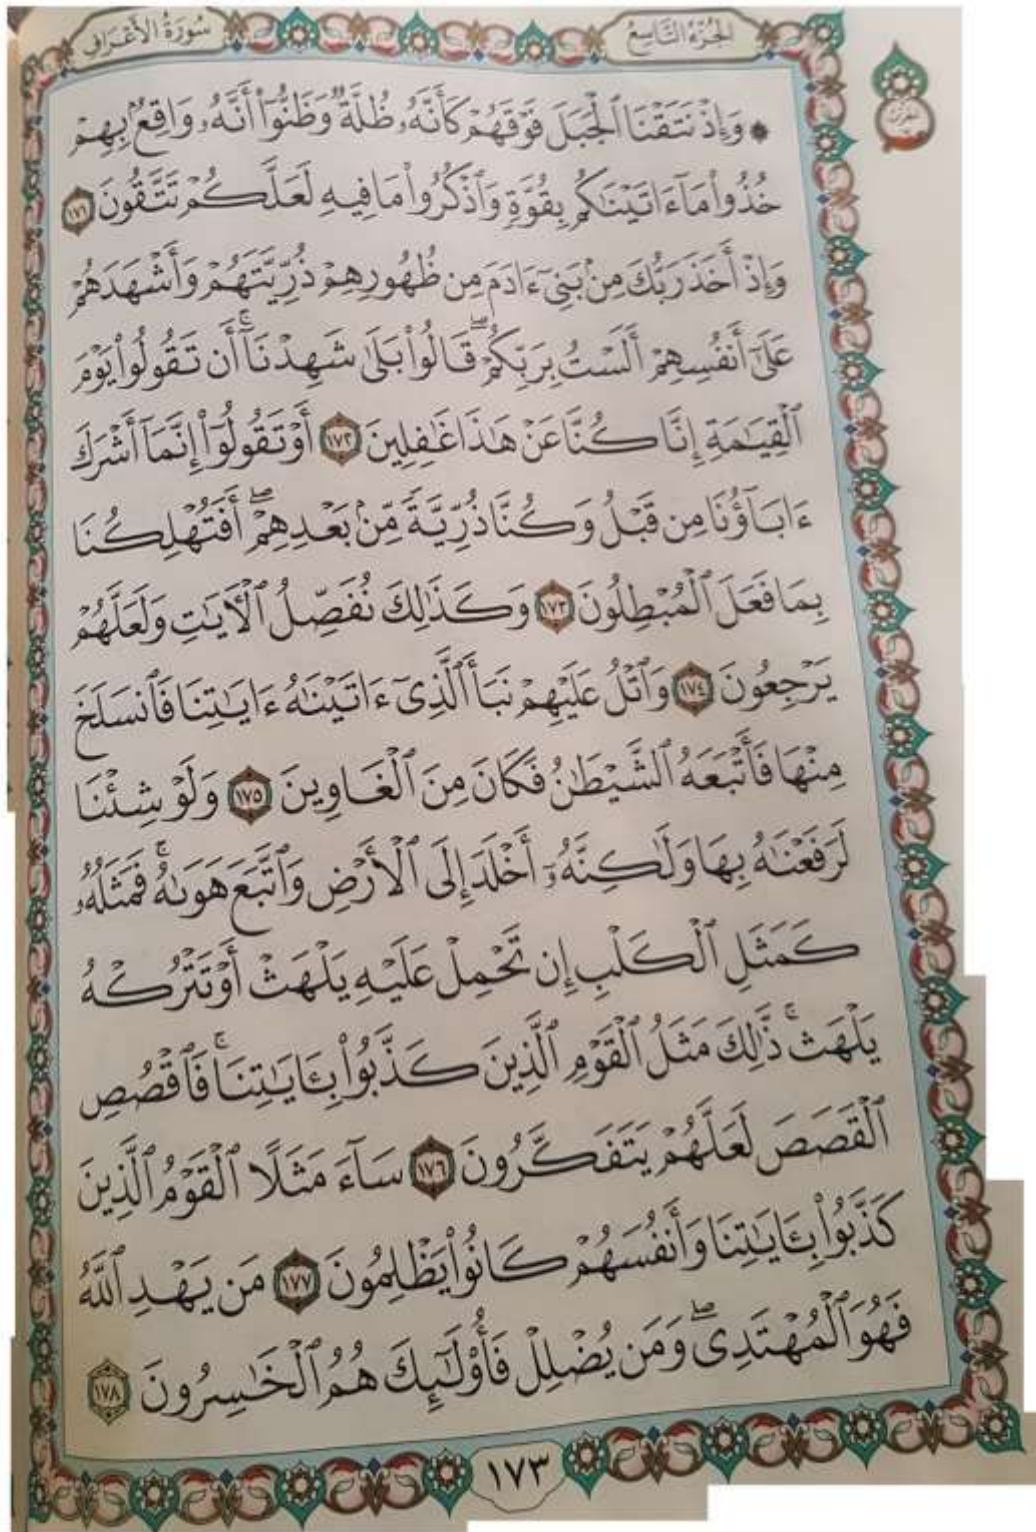 سُورَةُ الأَعْرَافِ
الجُزْءُ التَّاسِعُ
۞ وَإِذْ نَتَقْنَا ٱلْجَبَلَ فَوْقَهُمْ كَأَنَّهُۥ ظُلَّةٌ وَظَنُّوٓا۟ أَنَّهُۥ وَاقِعٌۢ بِهِمْ
خُذُوا۟ مَآ ءَاتَيْنَٰكُم بِقُوَّةٍ وَٱذْكُرُوا۟ مَا فِيهِ لَعَلَّكُمْ تَتَّقُونَ ١٧١
وَإِذْ أَخَذَ رَبُّكَ مِنۢ بَنِىٓ ءَادَمَ مِن ظُهُورِهِمْ ذُرِّيَّتَهُمْ وَأَشْهَدَهُمْ
عَلَىٰٓ أَنفُسِهِمْ أَلَسْتُ بِرَبِّكُمْ ۖ قَالُوا۟ بَلَىٰ شَهِدْنَآ ۛ أَن تَقُولُوا۟ يَوْمَ
ٱلْقِيَٰمَةِ إِنَّا كُنَّا عَنْ هَٰذَا غَٰفِلِينَ ١٧٢ أَوْ تَقُولُوٓا۟ إِنَّمَآ أَشْرَكَ
ءَابَآؤُنَا مِن قَبْلُ وَكُنَّا ذُرِّيَّةً مِّنۢ بَعْدِهِمْ ۖ أَفَتُهْلِكُنَا
بِمَا فَعَلَ ٱلْمُبْطِلُونَ ١٧٣ وَكَذَٰلِكَ نُفَصِّلُ ٱلْءَايَٰتِ وَلَعَلَّهُمْ
يَرْجِعُونَ ١٧٤ وَٱتْلُ عَلَيْهِمْ نَبَأَ ٱلَّذِىٓ ءَاتَيْنَٰهُ ءَايَٰتِنَا فَٱنسَلَخَ
مِنْهَا فَأَتْبَعَهُ ٱلشَّيْطَٰنُ فَكَانَ مِنَ ٱلْغَاوِينَ ١٧٥ وَلَوْ شِئْنَا
لَرَفَعْنَٰهُ بِهَا وَلَٰكِنَّهُۥٓ أَخْلَدَ إِلَى ٱلْأَرْضِ وَٱتَّبَعَ هَوَىٰهُ ۚ فَمَثَلُهُۥ
كَمَثَلِ ٱلْكَلْبِ إِن تَحْمِلْ عَلَيْهِ يَلْهَثْ أَوْ تَتْرُكْهُ
يَلْهَث ۚ ذَّٰلِكَ مَثَلُ ٱلْقَوْمِ ٱلَّذِينَ كَذَّبُوا۟ بِـَٔايَٰتِنَا ۚ فَٱقْصُصِ
ٱلْقَصَصَ لَعَلَّهُمْ يَتَفَكَّرُونَ ١٧٦ سَآءَ مَثَلًا ٱلْقَوْمُ ٱلَّذِينَ
كَذَّبُوا۟ بِـَٔايَٰتِنَا وَأَنفُسَهُمْ كَانُوا۟ يَظْلِمُونَ ١٧٧ مَن يَهْدِ ٱللَّهُ
فَهُوَ ٱلْمُهْتَدِى ۖ وَمَن يُضْلِلْ فَأُو۟لَٰٓئِكَ هُمُ ٱلْخَٰسِرُونَ ١٧٨
١٧٣